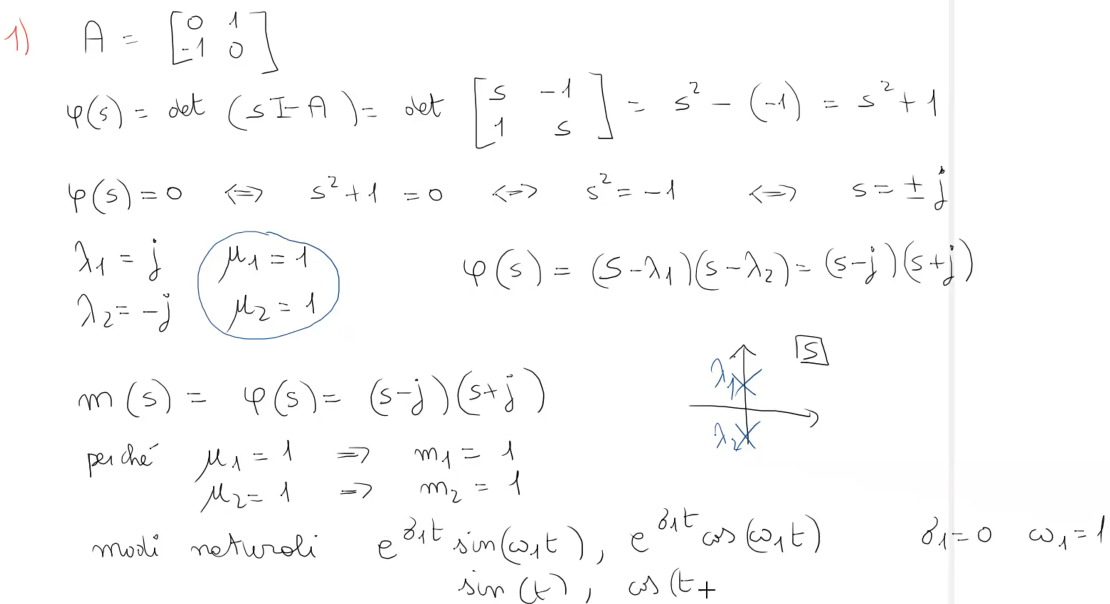 1) A = [0 1; -1 0]
φ(s) = det (sI-A) = det [s -1; 1 s] = s² - (-1) = s² + 1
φ(s) = 0 ⇔ s² + 1 = 0 ⇔ s² = -1 ⇔ s = ± j
λ₁ = j μ₁ = 1 φ(s) = (s-λ₁)(s-λ₂) = (s-j)(s+j)
λ₂ = -j μ₂ = 1
S
λ₁
λ₂
m(s) = φ(s) = (s-j)(s+j)
perché μ₁ = 1 ⇒ m₁ = 1
μ₂ = 1 ⇒ m₂ = 1
modi naturali e^σ₁t sin(ω₁t), e^σ₁t cos(ω₁t) σ₁=0 ω₁=1
sin(t), cos(t